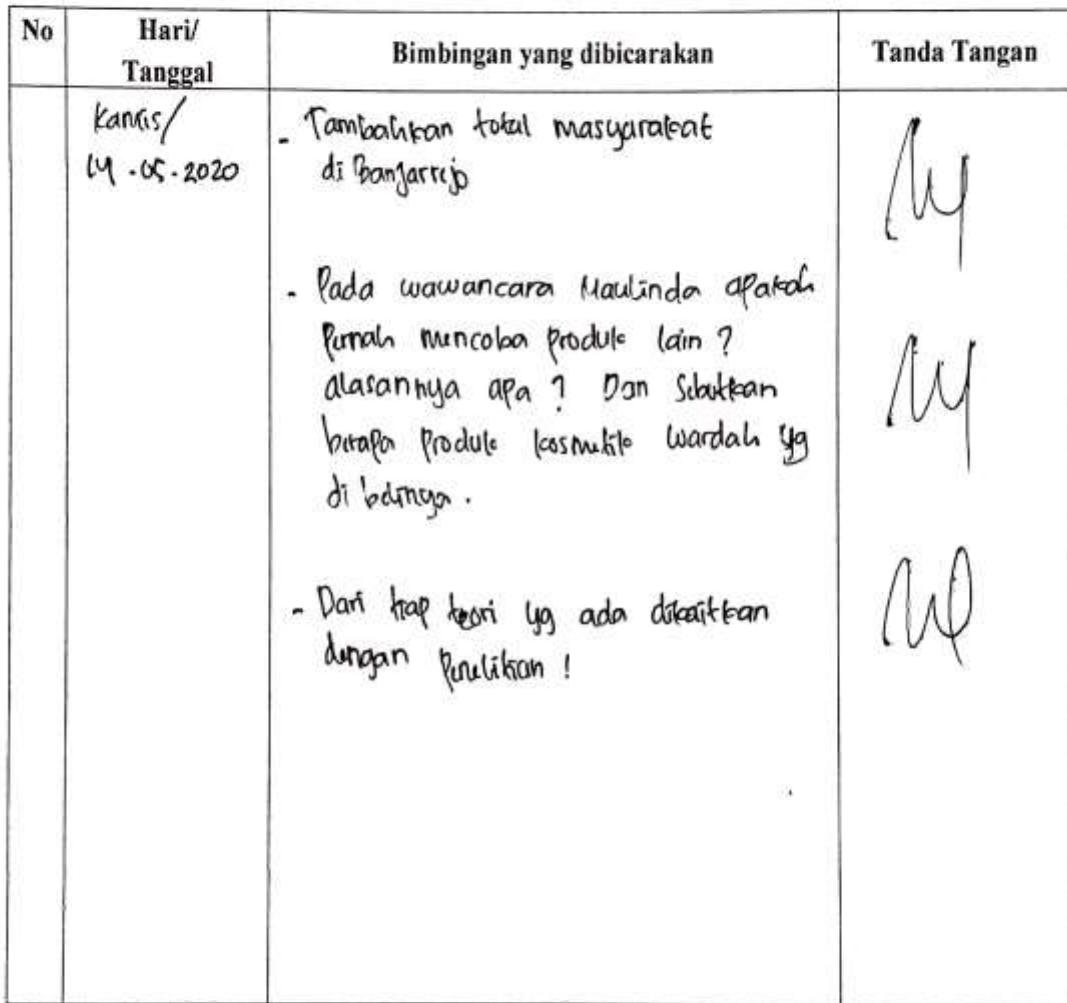 No
Hari/
Tanggal
Bimbingan yang dibicarakan
Tanda Tangan
Kamis/
14 -05-2020
- Tambahkan total masyarakat
di Banjarrejo
- Pada wawancara Maulinda apakah
Pernah mencoba Produk lain ?
alasannya apa ? Dan Sebutkan
berapa Produk kosmetik wardah yg
di belinya .
- Dari tiap teori yg ada dikaitkan
dengan Penelitian !